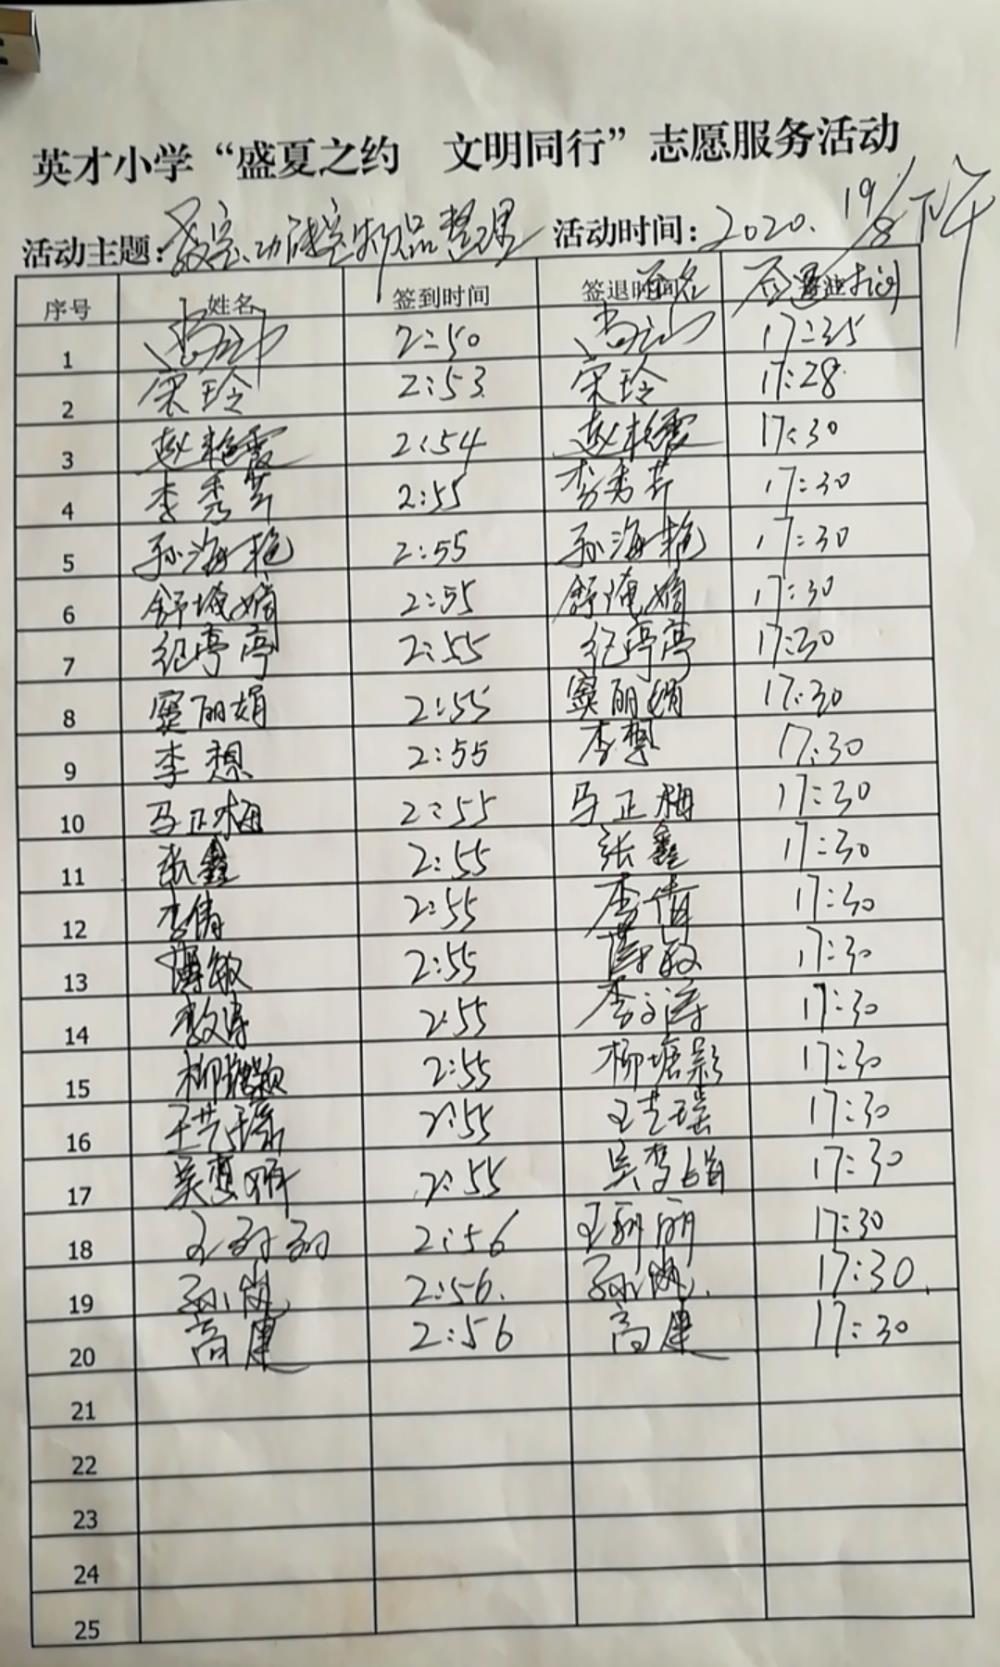 英才小学“盛夏之约 文明同行”志愿服务活动
活动主题：教室、功能室物品整理 活动时间：2020. 19/8 下午
序号 姓名 签到时间 签退时间 签名 签退时间
1 2:50 17:25
2 宋玲 2:53 宋玲 17:28
3 赵艳霞 2:54 赵艳霞 17:30
4 李秀芹 2:55 李秀芹 17:30
5 孙海艳 2:55 孙海艳 17:30
6 舒 嫡 2:55 舒 嫡 17:30
7 纪亭亭 2:55 纪亭亭 17:30
8 窦丽娟 2:55 窦丽娟 17:30
9 李想 2:55 李想 17:30
10 马正梅 2:55 马正梅 17:30
11 张鑫 2:55 张鑫 17:30
12 李倩 2:55 李倩 17:30
13 敏 2:55 敏 17:30
14 2:55 李文涛 17:30
15 柳 2:55 柳塘影 17:30
16 王艺瑶 2:55 王艺瑶 17:30
17 吴梦 2:55 吴梦 17:30
18 王 2:56 王 丽 17:30
19 孙 2:56. 孙 . 17:30.
20 高建 2:56 高建 17:30
21
22
23
24
25